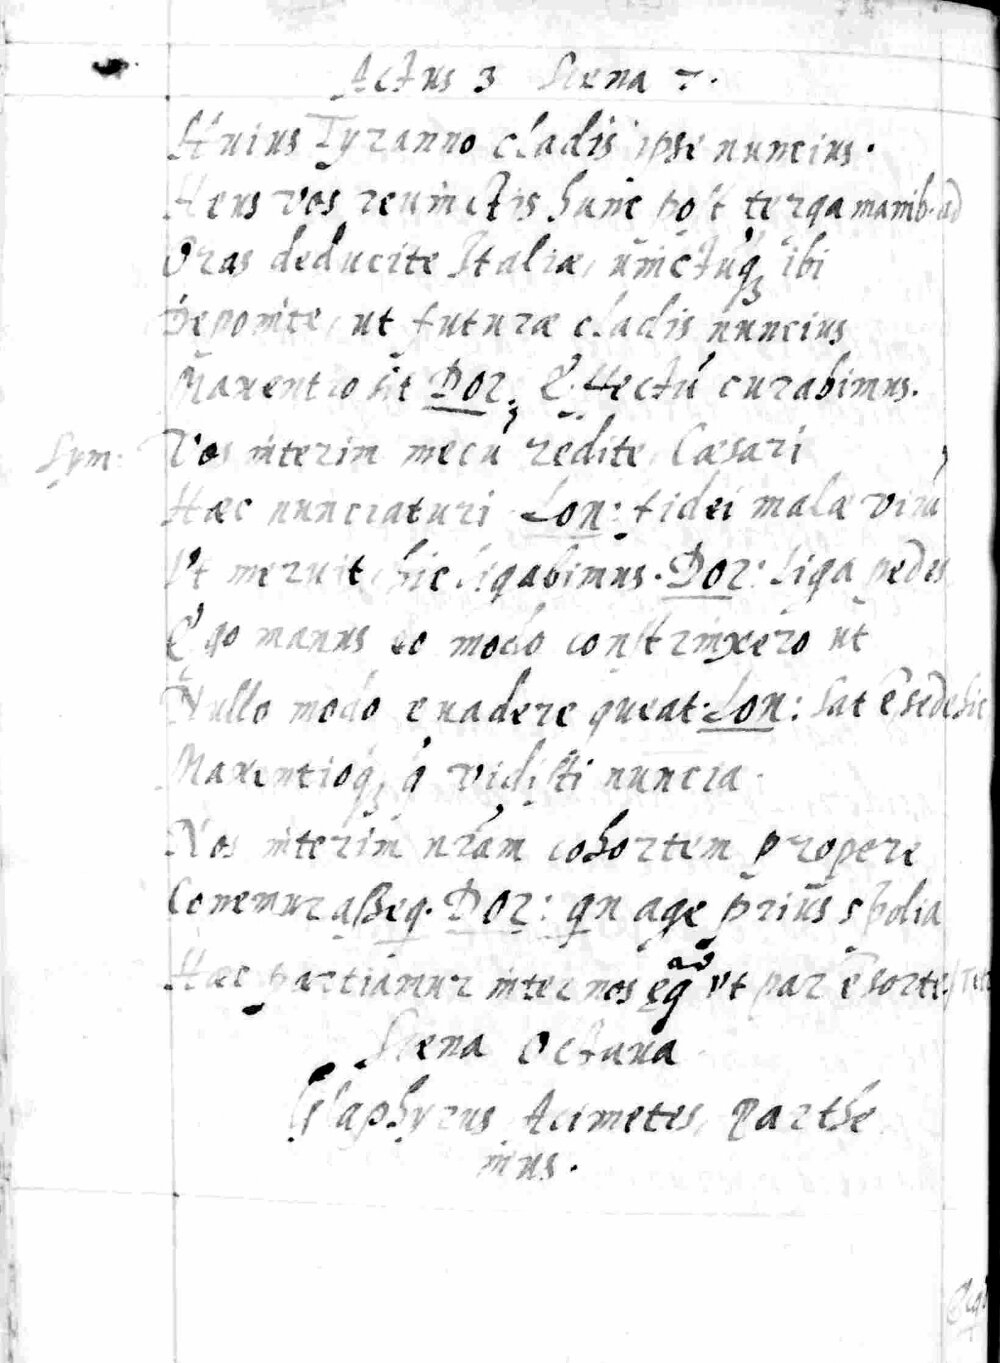 Actus 3 Scena 7.
Huius Tyranno cladis ipse nuncius.
Heus vos reuinctis hunc post terga manib. ad
Oras deducite Italiæ, uinctuq; ibi
Deponite, ut futuræ cladis nuncius
Maxentio sit Dor; Effectú curabimus.
Sym. Vos interim mecú redite Cæsari
Hæc nunciaturi Lon: fidei malæ virú
Vt meruit hic ligabimus. Dor: Liga pedes
Ego manus eo modo constrinxero ut
Nullo modo euadere queat. Lon: Sat ẽ sede hic
Maxentioq; q̃ vidisti nuncia.
Nos interim nr̃am cohortem propere
Conemur aßeq. Dor: qn age prius spolia
Hæc partiamur inter nos ęq̃ ut par ẽ sorte
Scena Octaua
Glaphyrus, Acimetes, Parthe
nius.